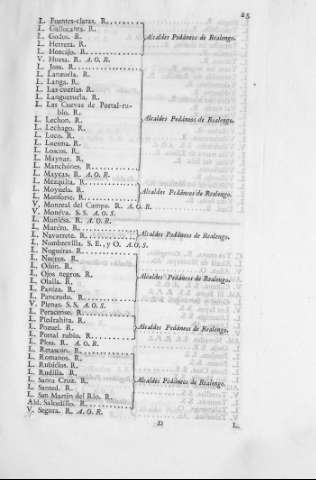 25
L. Fuentes-claras. R.
L. Gallocanta. R.
L. Godos. R.
L. Herrera. R.
L. Horcajo. R.
Alcaldes Pedáneos de Realengo.
V. Huesa. R. A. O. R.
L. Josa. R.
L. Lanzuela. R.
L. Langa. R.
L. Las cuerlas. R.
L. Langueruela. R.
L. Las Cuevas de Portal-ru-
bio. R.
L. Lechon. R.
L. Lechago. R.
L. Luco. R.
L. Luesma. R.
L. Loscos. R.
L. Maynar. R.
L. Manchones. R.
Alcaldes Pedáneos de Realengo.
L. Maycas. R. A. O. R.
L. Mezquita. R.
L. Moyuela. R.
L. Monforte. R.
Alcaldes Pedáneos de Realengo.
V. Monreal del Campo. R. A. O. R.
V. Moneva. S. S. A. O. S.
L. Muniesa. R. A. O. R.
L. Murero. R.
L. Navarrete. R.
Alcaldes Pedáneos de Realengo.
L. Nombrevilla. S. E., y O. A. O. S.
L. Nogueras. R.
L. Nueros. R.
L. Odon. R.
L. Ojos negros. R.
L. Olalla. R.
L. Paniza. R.
L. Pancrudo. R.
Alcaldes Pedáneos de Realengo.
V. Plenas. S. S. A. O. S.
L. Peracense. R.
L. Piedrahita. R.
L. Pozuel. R.
L. Portal rubio. R.
Alcaldes Pedáneos de Realengo.
L. Plou. R. A. O. R.
L. Retascon. R.
L. Romanos. R.
L. Rubielos. R.
L. Rudilla. R.
L. Santa Cruz. R.
L. Santed. R.
L. San Martin del Rio. R.
Ald. Salcedillo. R.
Alcaldes Pedáneos de Realengo.
V. Segura. R. A. O. R.
D L.